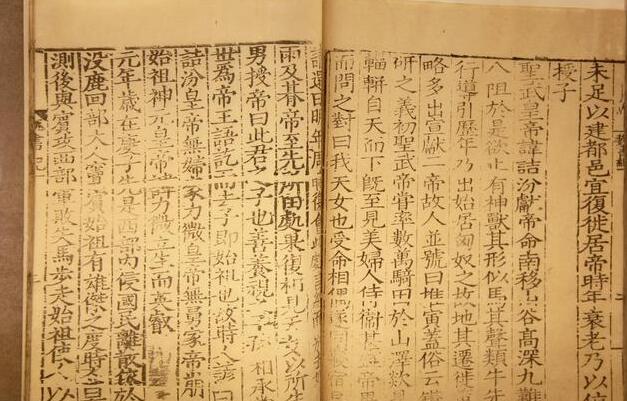 未足以建都邑宜復徙居帝時年衰老乃以位
授子
聖武皇帝諱詰汾獻帝命南移山谷高深九難
八阻於是欲止有神獸其形似馬其聲類牛先
行導引歷年乃出始居匈奴之故地其遷徙
略多出宣獻二帝故人並號曰推寅蓋俗云
研之義初聖武帝嘗率數萬騎田於山澤欻見
輜軿自天而下既至見美婦人侍衛甚盛帝異
而問之對曰我天女也受命相偶遂同寢宿旦
請還曰明年周時復會此處
雨及朞帝至先所田處果復相見天女以所生
男授帝曰此君之子也善養視之子孫相承當
世爲帝王語訖而去子即始祖也故時人諺曰
詰汾皇帝無婦家力微皇帝無舅家帝崩
始祖神元皇帝諱力微立生而英叡
元年歲在庚子先是西部內侵國民離散依於
没鹿回部大人竇賓始祖有雄傑之度時人莫
測後與賓攻西部軍敗失馬步走始祖使人以